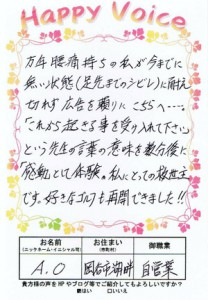 Happy Voice
万年腰痛持ちの私が今までに
無い状態(足先までのシビレ)に耐え
切れず広告を頼りにこちらへ・・・。
「これから起きる事を受け入れて下さい」
という先生の言葉の意味を数分後に
「感動」として体験。私にとっての救世主
です。好きなゴルフも再開できました!!
お名前
(ニックネーム・イニシャル可)
お住まい
(市町村)
御職業
A.O
岡谷市湖畔
自営業
貴方様の声をHPやブログ等でご紹介してもよろしいですか?
□はい □いいえ